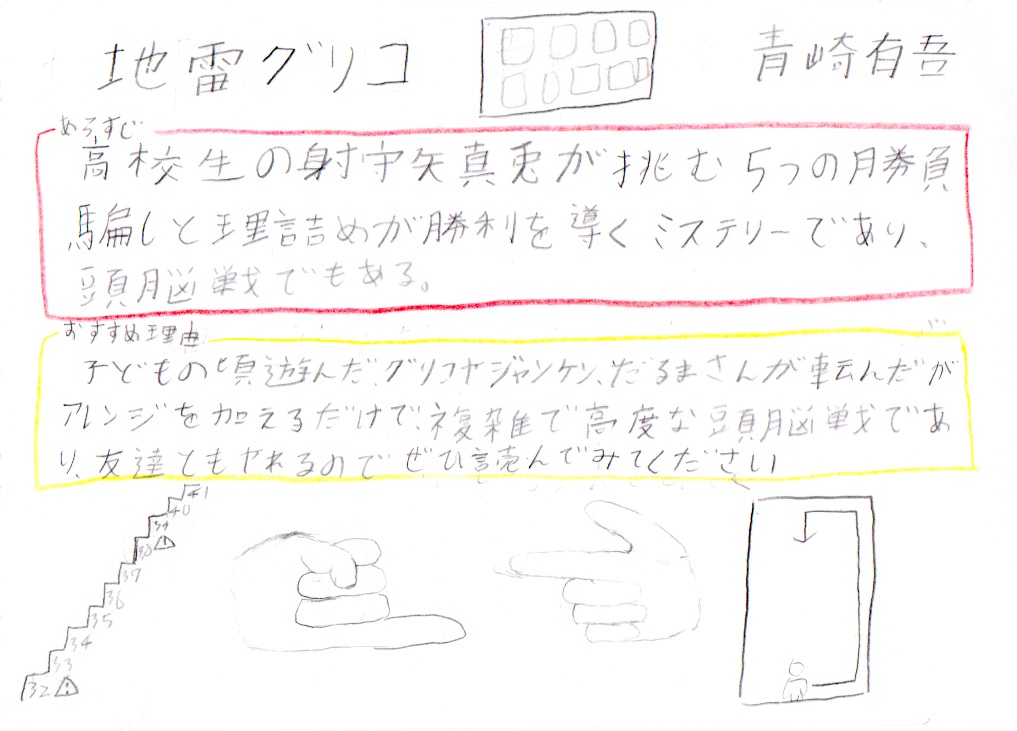 地雷グリコ
青崎有吾
あらすじ
高校生の射守矢真兎が挑む5つの勝負
騙しと理詰めが勝利を導くミステリーであり、
頭脳戦でもある。
おすすめ理由
子どもの頃遊んだ、グリコやジャンケン、だるまさんが転んだが
アレンジを加えるだけで、複雑で高度な頭脳戦であ
り、友達ともやれるのでぜひ読んでみてください
41
40
39
38
37
36
35
34
33
32